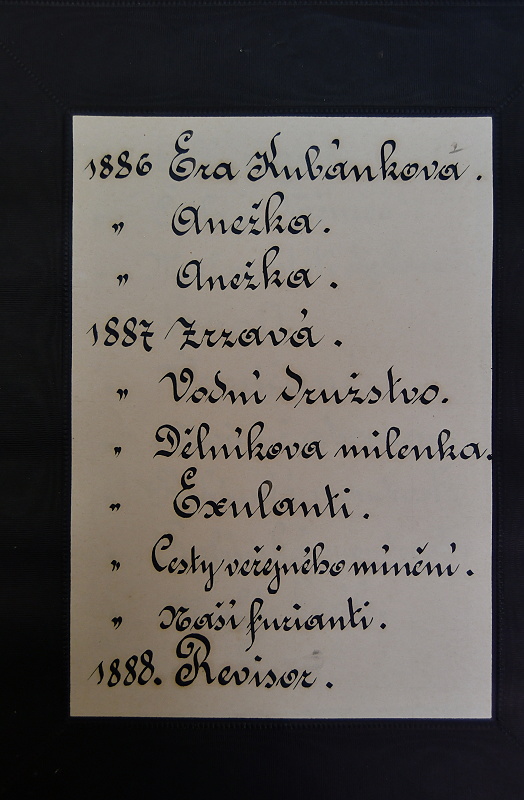 1886 Era Kubánkova.
„ Anežka.
„ Anežka.
1887 Zrzavá.
„ Vodní družstvo.
„ Dělníkova milenka.
„ Exulanti.
„ Cesty veřejného mínění.
„ Naši furianti.
1888. Revisor.